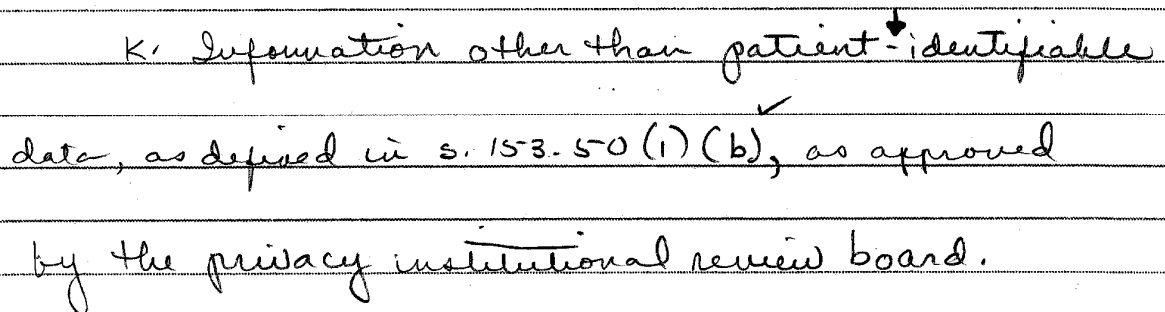 K. Information other than patient-identifiable
data, as defined in s. 153.50 (1) (b), as approved
by the privacy institutional review board.